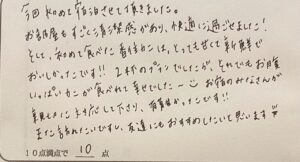 今回初めて宿泊させて頂きました。
お部屋もすごく清潔感があり、快適に過ごせました!
そして、初めて食べた香住ガニは、とっても甘くて新鮮で
おいしかったです!! 2杯のプランでしたが、それでもお腹
いっぱいカニが食べれて幸せでした〜☺ お宿のみなさんが
気持ちよく対応して下さり、有難かったです!!
また訪れたいですし、友達にもおすすめしたいと思います
10点満点で 10 点